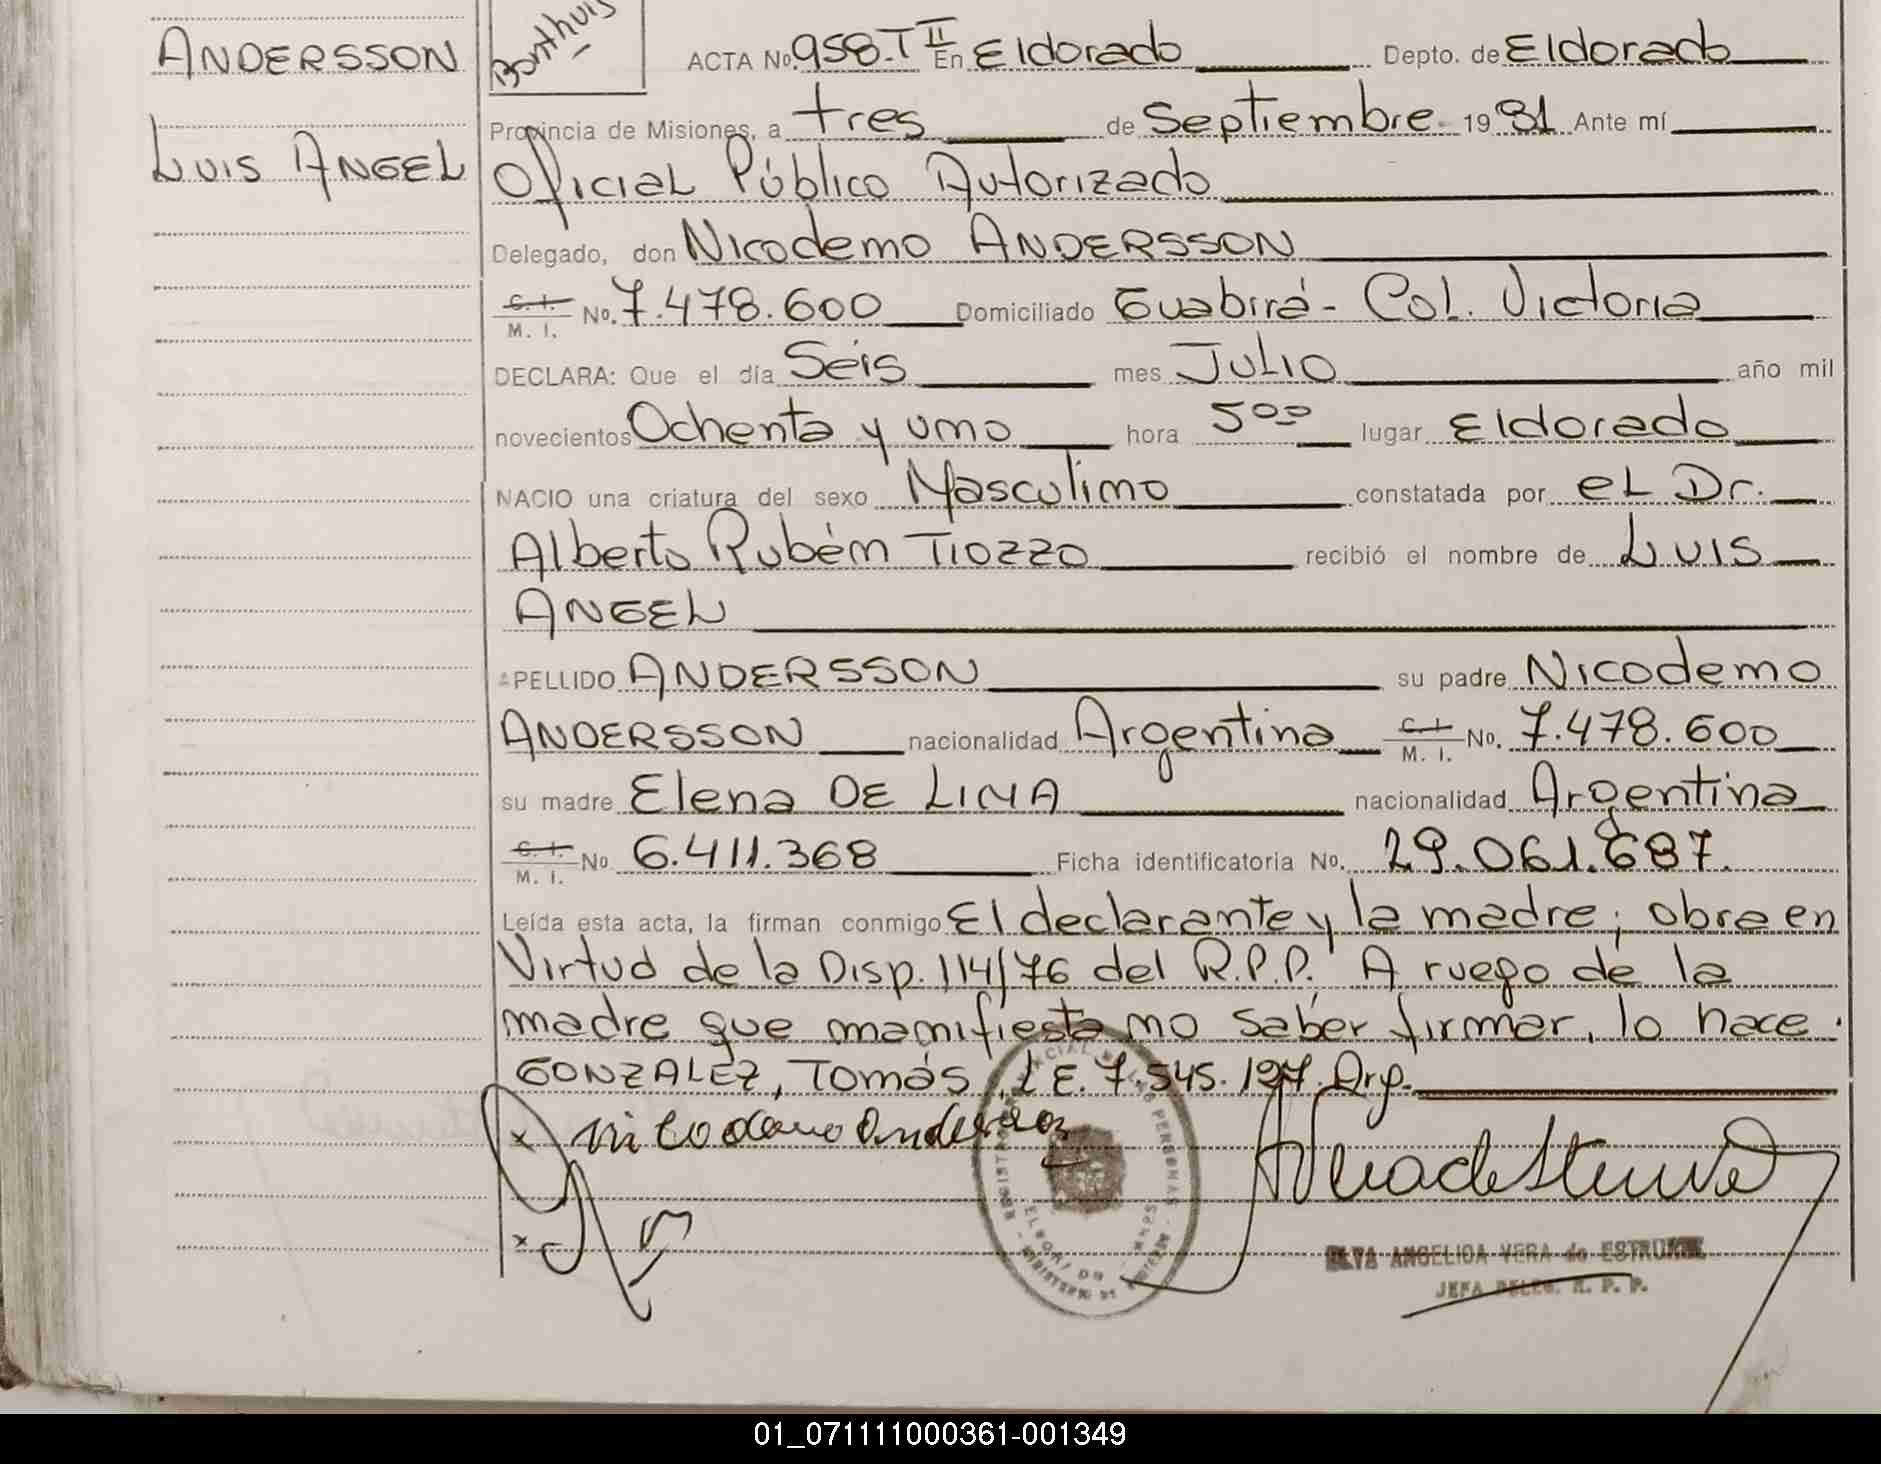 ANDERSSON
LUIS ANGEL
Bonthuis
ACTA No. 958. T II En Eldorado Depto. de Eldorado
Provincia de Misiones, a tres de Septiembre 19 81 Ante mí
Oficial Público Autorizado
Delegado, don Nicodemo ANDERSSON
C. I. M. I. No. 7.478.600 Domiciliado Guabirá - Col. Victoria
DECLARA: Que el día Séis mes Julio año mil
novecientos Ochenta y uno hora 5 00 lugar Eldorado
NACIO una criatura del sexo Masculino constatada por el Dr.
Alberto Rubén Tiozzo recibió el nombre de Luis
ANGEL
APELLIDO ANDERSSON su padre Nicodemo
ANDERSSON nacionalidad Argentina C. I. M. I. No. 7.478.600
su madre Elena DE LIMA nacionalidad Argentina
C. I. M. I. No 6.411.368 Ficha identificatoria No. 29.061.687.
Leída esta acta, la firman conmigo El declarante y la madre; obra en
Virtud de la Disp. 114/76 del R.P.P. A ruego de la
madre que manifiesta no saber firmar, lo hace:
GONZALEZ, Tomás, L.E. 7.545.127. Arg.
x Nicodemo Andersson
x
ELVA ANGELICA VERA de ESTRUNCE
JEFA DELEG. R. P. P.
01_071111000361-001349